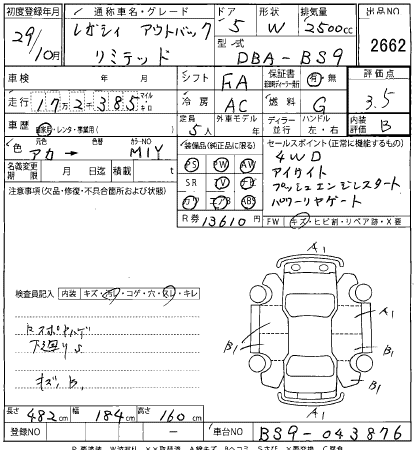 初度登録年月 通称車名・グレード ドア 形状 排気量 出品NO
29/10月 レガシィ アウトバック リミテッド 5 W 2500cc 2662
型式 DBA-BS9
車検 年 月 シフト FA 保証書 有・無 評価点
走行 172,385 マイル キロ 冷房 AC 燃料 G 3.5
車歴 自家用・レンタ・事業用( ) 定員 5人 外車モデル 年 ディーラー 並行 ハンドル 左・右 内装評価 B
色 元色 アカ → 色替 カラーNO M1Y 装備品(純正品に限る) セールスポイント(正常に機能するもの)
名義変更期限 月 日迄 積載量 t PS PW AW
4WD
アイサイト
プッシュエンジンスタート
パワーリヤゲート
注意事項(欠品・修復・不具合箇所および状態) SR TV ナビ
カワ エアB ABS
R券 13610円 FW キズ・ヒビ割・リペア跡・X要
検査員記入 内装 キズ・汚レ・コゲ・穴・スレ・キレ
A1
A1
B1
B1
A1
A1
下廻りS
キズ、B、
長さ 482cm 幅 184cm 高さ 160cm
登録NO ー 車台NO BS9-043876